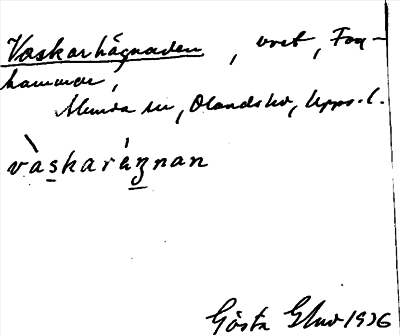 Vaskarhägnaden, vret, Fag-
hammar,
Almunda sn, Olandshd, Upps. l.
vàskaráʒnan
Gösta 1936